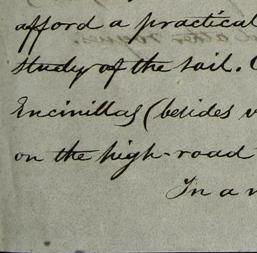 afford a practical
study of the soil.
Encinillas (besides
on the high-road
In a